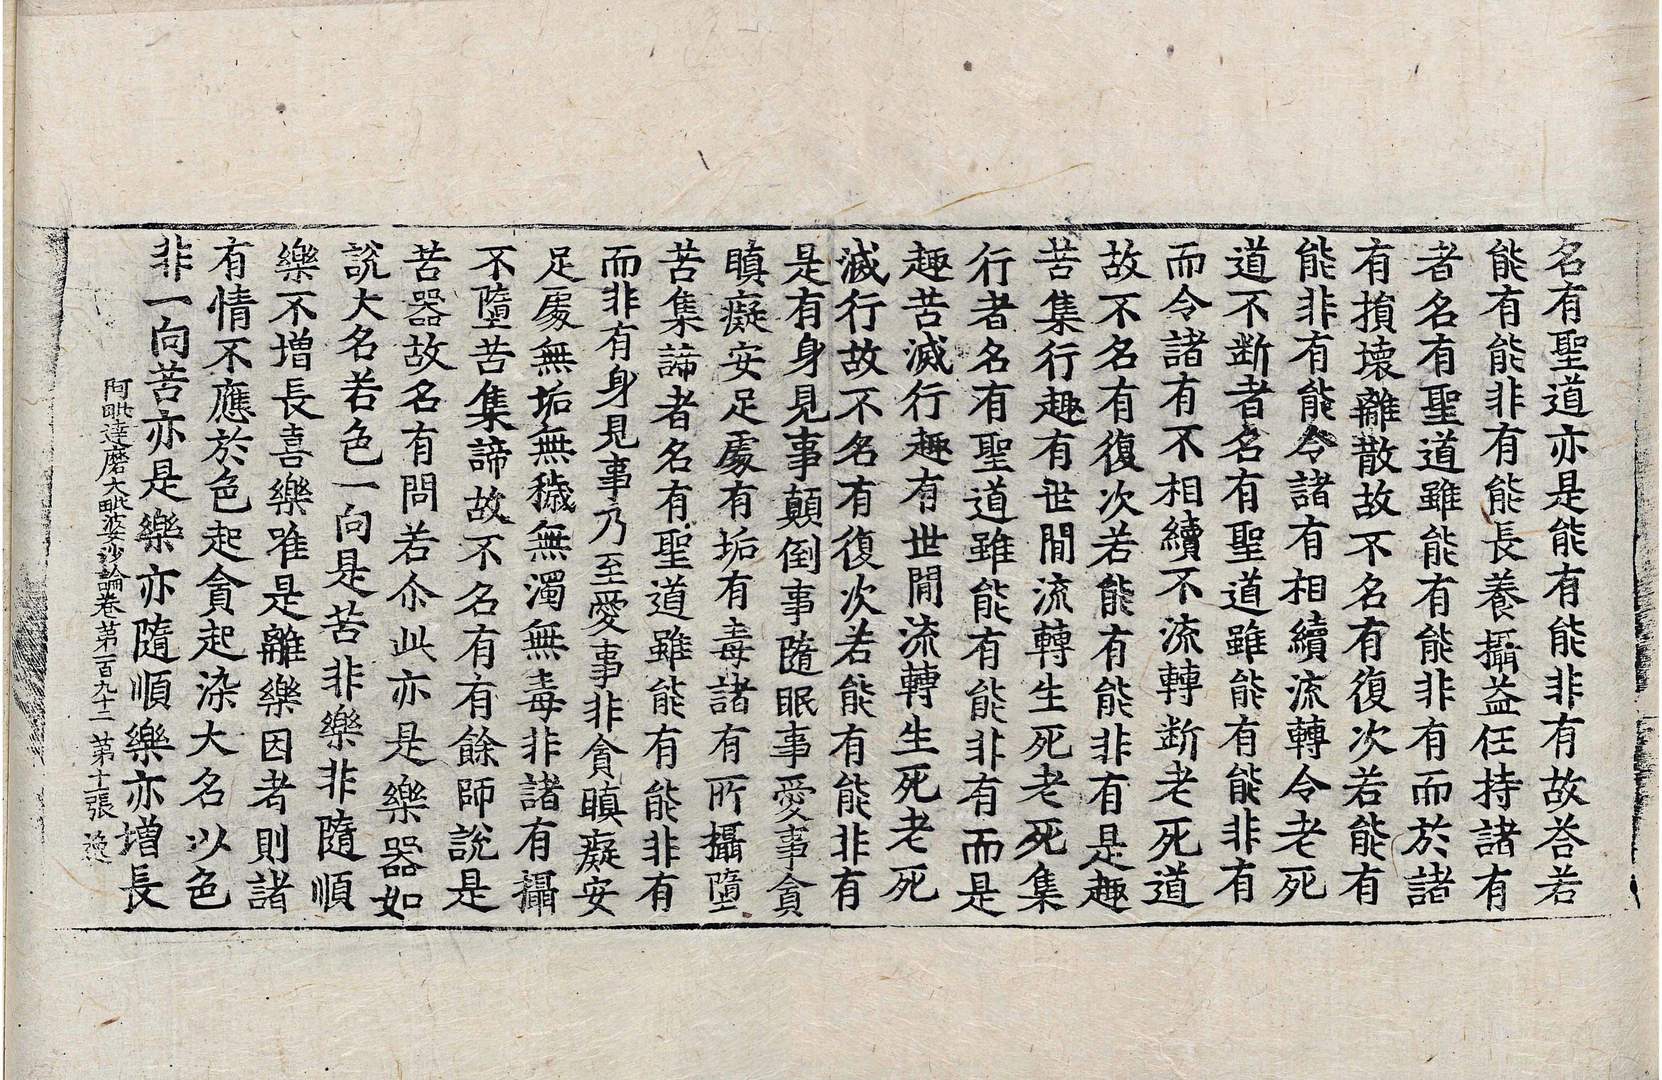 名有聖道亦是能有能非有故荅若
能有能非有能長養攝益任持諸有
者名有聖道雖能有能非有而於諸
有損壞離散故不名有復次若能有
能非有能令諸有相續流轉令老死
道不斷者名有聖道雖能有能非有
而令諸有不相續不流轉斷老死道
故不名有復次若能有能非有是趣
苦集行趣有世間流轉生死老死集
行者名有聖道雖能有能非有而是
趣苦滅行趣有世間流轉生死老死
滅行故不名有復次若能有能非有
是有身見事顛倒事隨眠事愛事貪
瞋癡安足處有垢有毒諸有所攝墮
苦集諦者名有聖道雖能有能非有
而非有身見事乃至愛事非貪瞋癡安
足處無垢無穢無濁無毒非諸有攝
不墮苦集諦故不名有有餘師說是
苦器故名有問若尒此亦是樂器如
說大名若色一向是苦非樂非隨順
樂不增長喜樂唯是離樂因者則諸
有情不應於色起貪起染大名以色
非一向苦亦是樂亦隨順樂亦增長
阿毗達磨大毗婆沙論卷第一百九十二 第十一張 逸